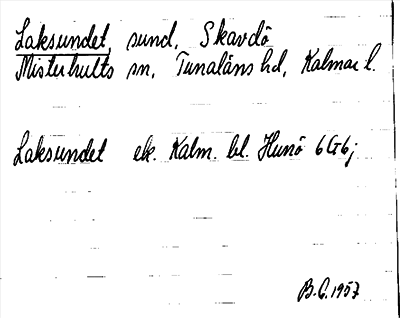 Laksundet, sund, Skavdö
Misterhults sn, Tunaläns hd, Kalmar l.
Laksundet ek. Kalm. bl. Hunö 6G6j
B.C. 1957